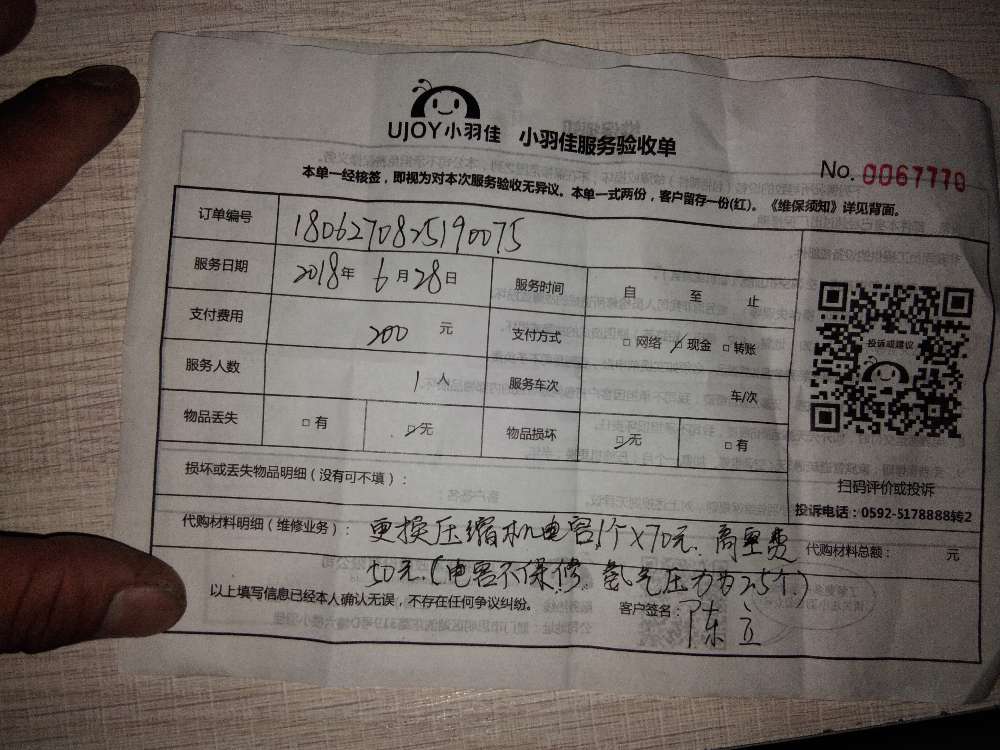 UJOY小羽佳 小羽佳服务验收单
No. 0067770
本单一经核签，即视为对本次服务验收无异议。本单一式两份，客户留存一份(红)。《维保须知》详见背面。
订单编号 1806270825190075
服务日期 2018年 6月28日 服务时间 自 至 止
支付费用 200 元 支付方式 □ 网络 ☑ 现金 □ 转账
服务人数 1 人 服务车次 车/次
物品丢失 □ 有 ☑ 无 物品损坏 ☑ 无 □ 有
投诉或建议
扫码评价或投诉
投诉电话：0592-5178888转2
损坏或丢失物品明细（没有可不填）：
代购材料明细（维修业务）： 更换压缩机电容1个×70元、高空费 代购材料总额： 元
50元.(电容不保修.氢气压力为2.5个.)
以上填写信息已经本人确认无误，不存在任何争议纠纷。 客户签名：陈立